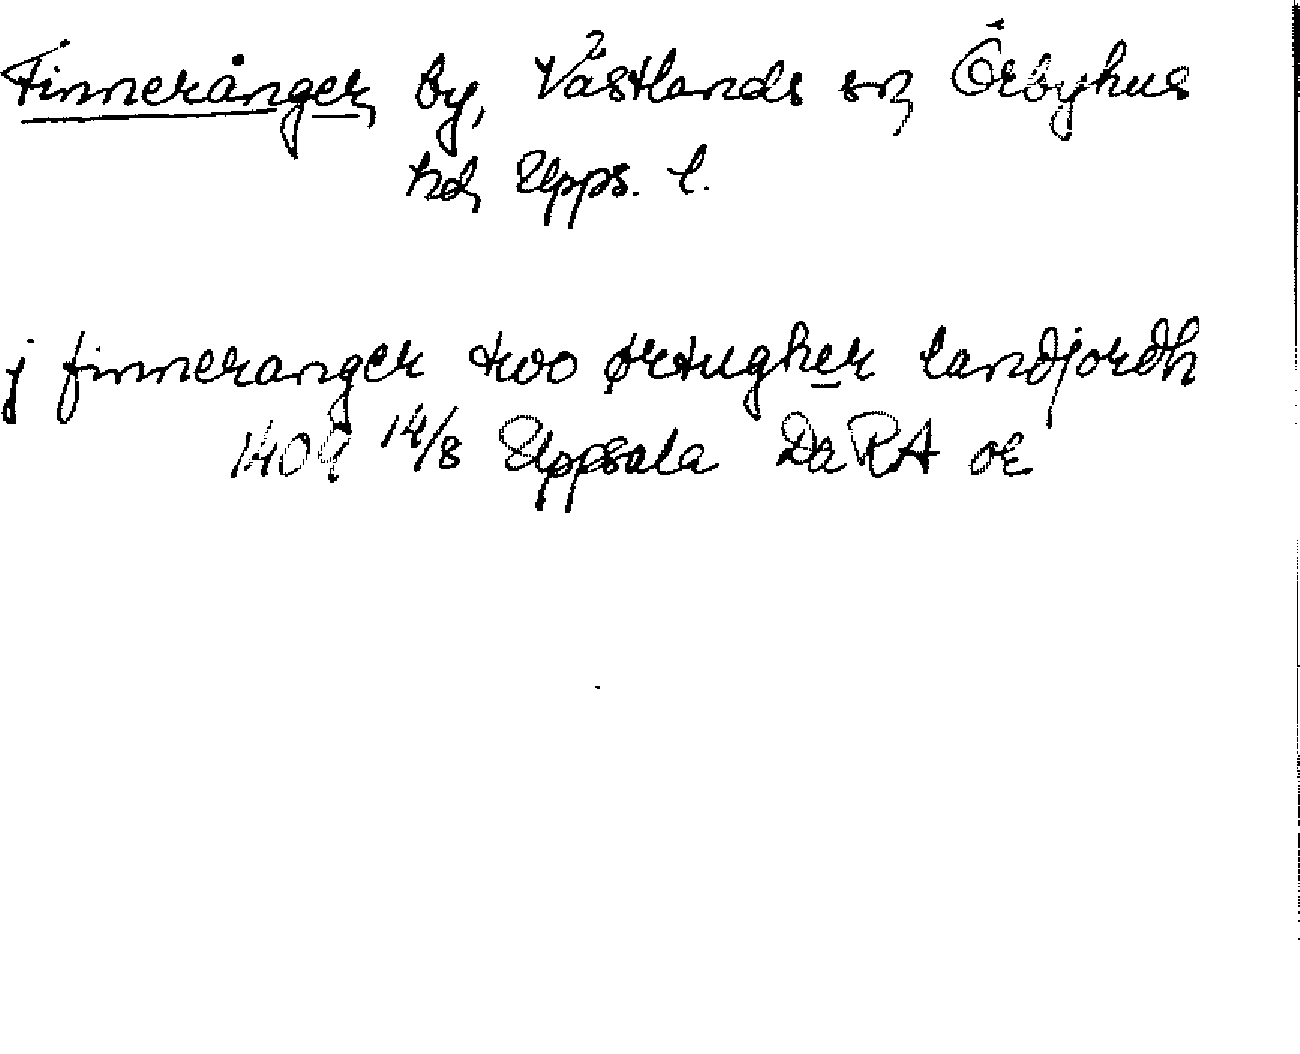 Finneränger, by, Västlands sn, Örbyhus
hd, Upps. l.
j finneranger two ørtugher landjordh
1409 14/8 Uppsala Da RA or